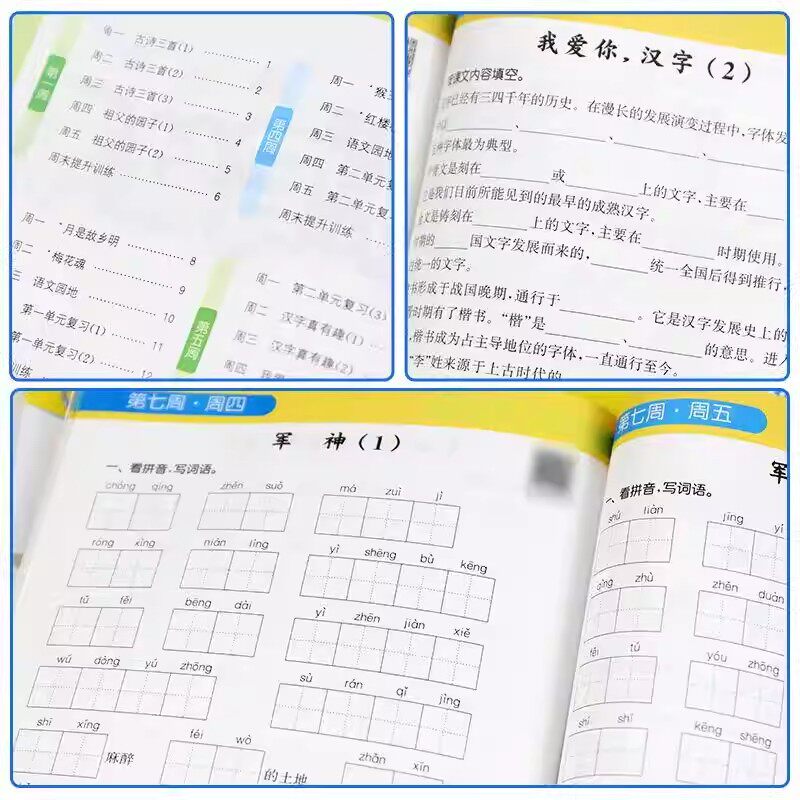 第一周
周一 古诗三首(1) 1
周二 古诗三首(2) 2
周三 古诗三首(3) 3
周四 祖父的园子(1) 4
周五 祖父的园子(2) 5
周末提升训练 6
周一 *月是故乡明 8
周二 *梅花魂 9
三 语文园地 10
第一单元复习(1) 11
第一单元复习(2) 12
训练
第四周
周一 *猴
周二 *红楼
周三 语文园地
周四 第二单元
周五 第二单元复
周末提升训练
第五周
周一 第二单元复习(3)
周二 汉字真有趣(1)
周三 汉字真有趣(2)
周四 我
我爱你,汉字(2)
课文内容填空。
已经有三四千年的历史。在漫长的发展演变过程中,字体发
、 、 、
种字体最为典型。
文是刻在 或 上的文字,主要在
是我们目前所能见到的最早的成熟汉字。
文是铸刻在 上的文字,主要在 时期使用。
时期的 国文字发展而来的, 统一全国后得到推行,
统一的文字。
书形成于战国晚期,通行于 。它是汉字发展史上的
时期有了楷书。“楷”是 、 的意思。进入
,楷书成为占主导地位的字体,一直通行至今。
“李”姓来源于上古时代的
第七周·周四
军 神(1)
一、看拼音,写词语。
chóng qìng zhěn suǒ má zuì jì
róng xìng nián líng yì shēng bù kēng
tǔ fěi bēng dài yì zhēn jiàn xiě
wú dòng yú zhōng sù rán qǐ jìng
shī xíng 麻醉 féi wò 的土地 zhān xīn
第七周·周五
军
一、看拼音,写词语。
shú liàn jìng y
qìng zhù zhěn duàn
fěi tú yóu zhōng
shī shī kēng shēng